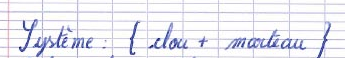 Système : { clou + marteau }